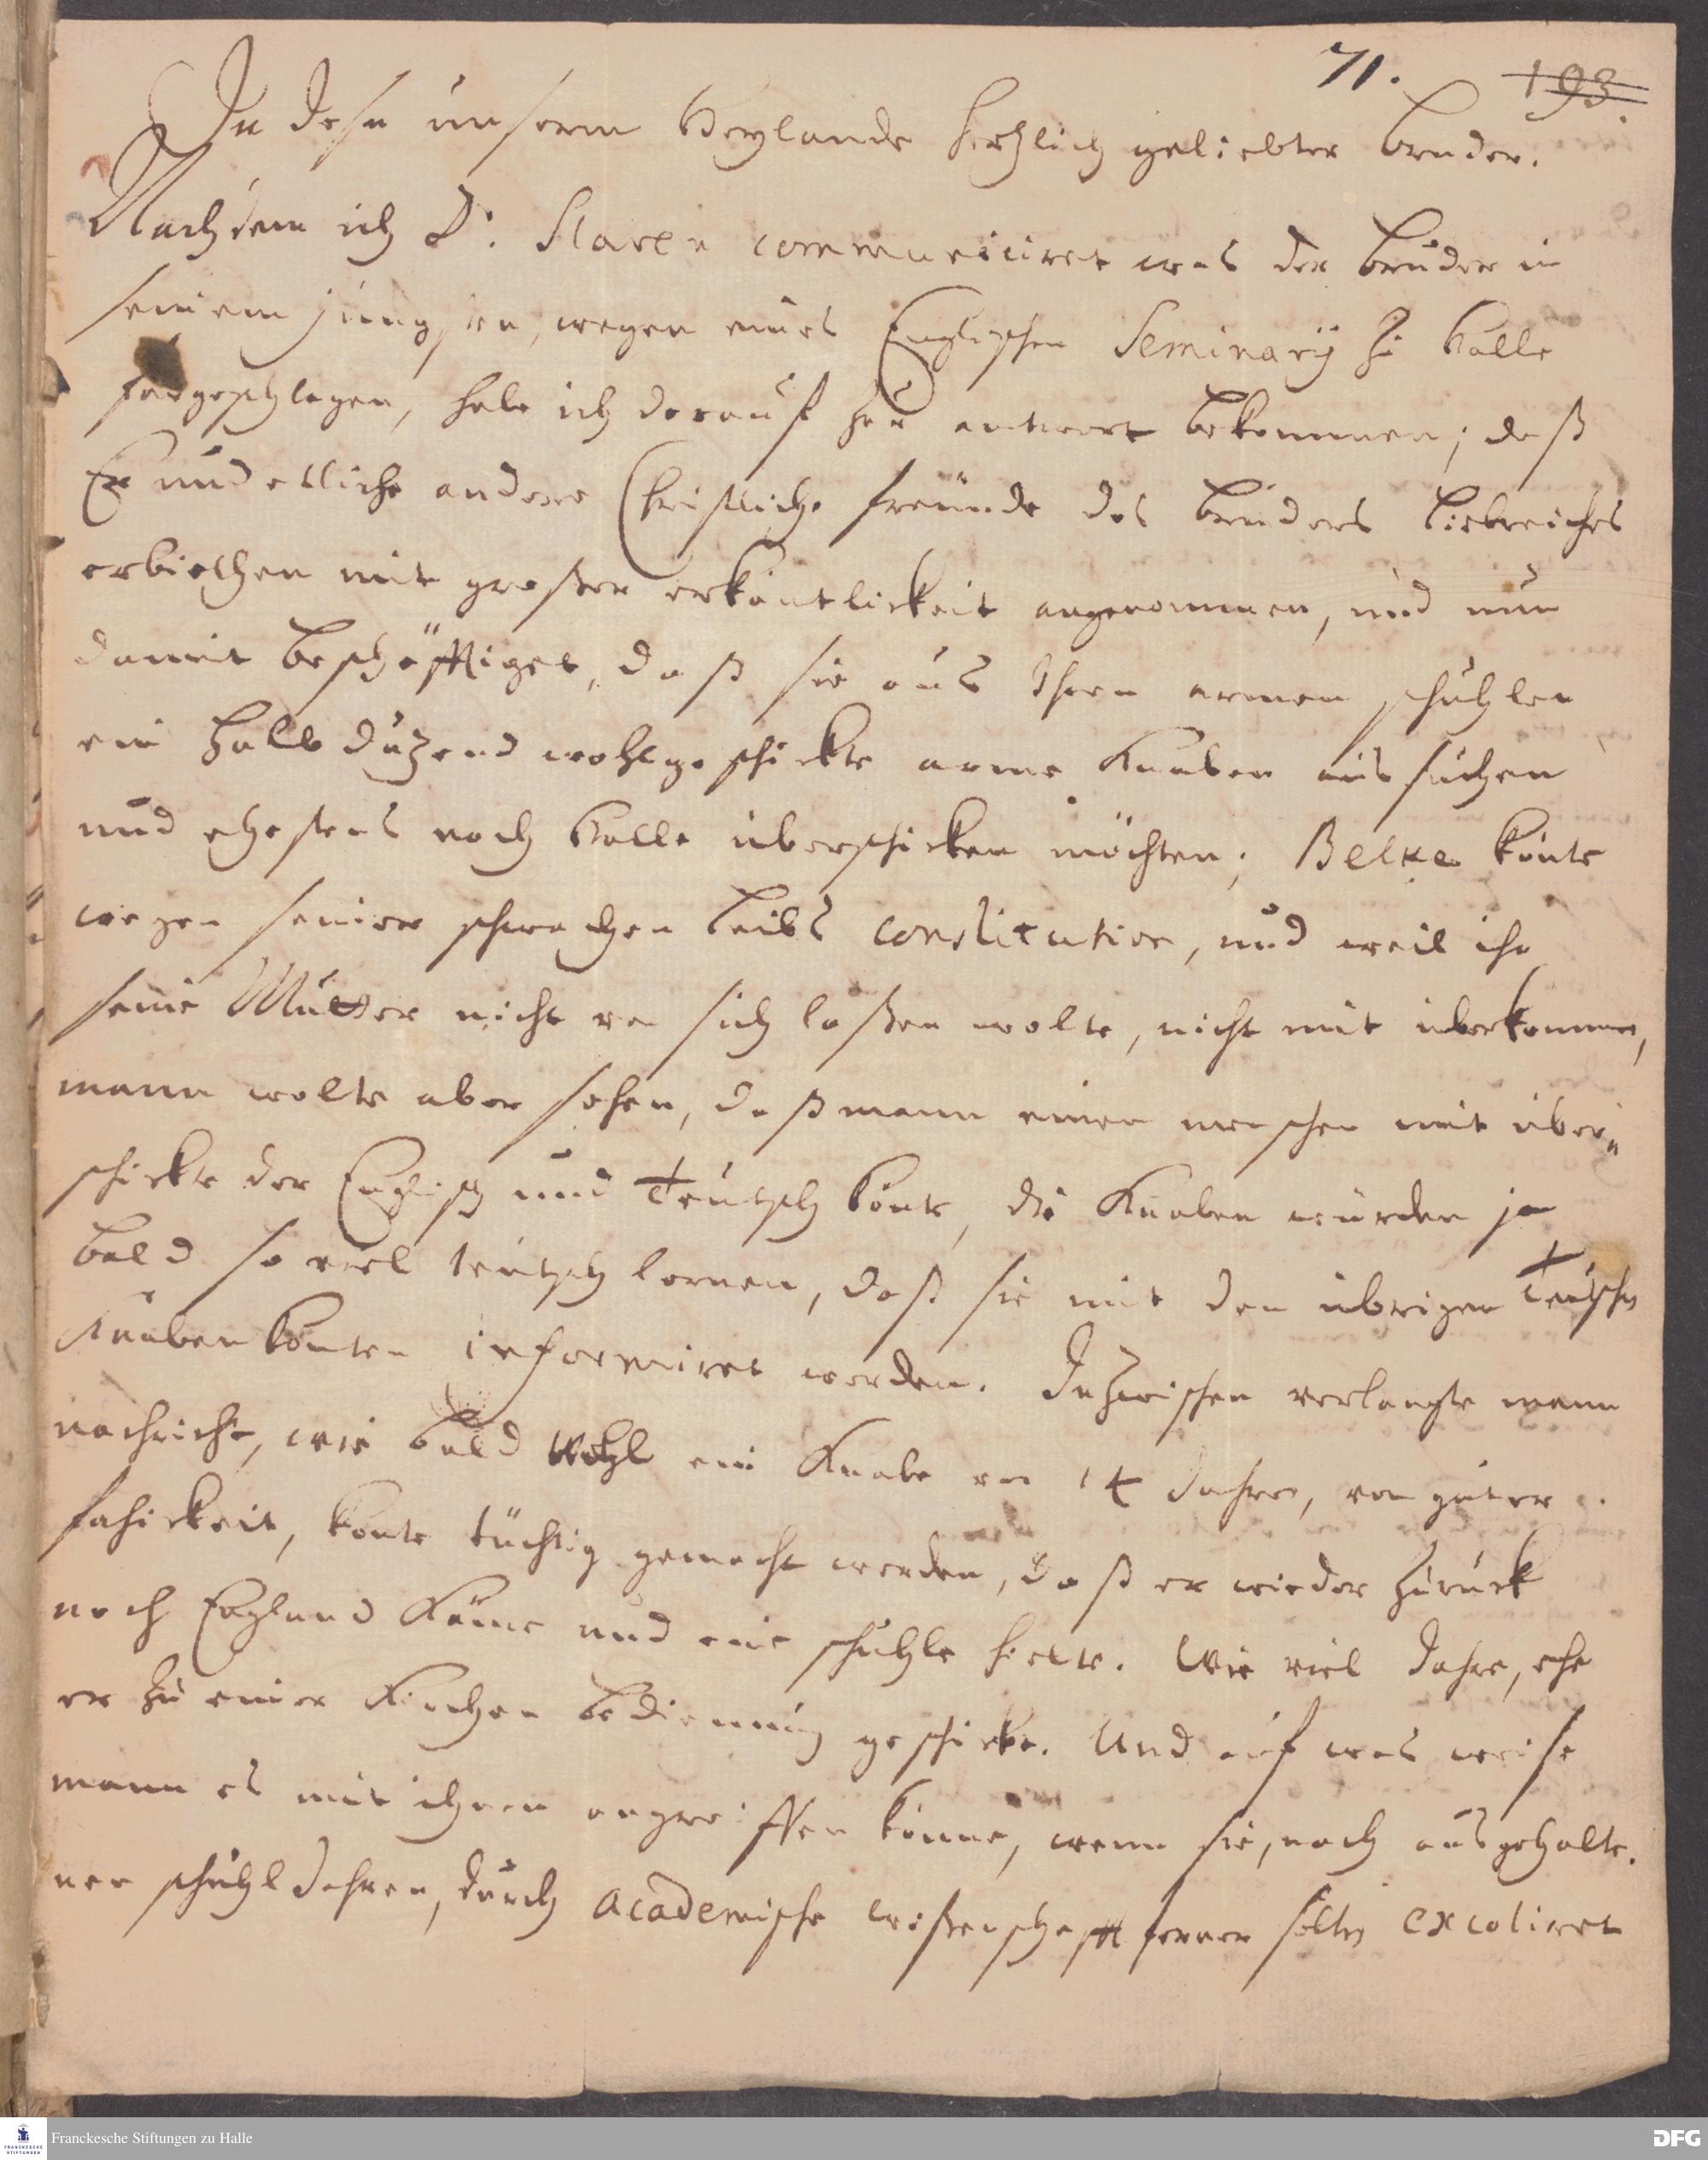 71. 193.
In Jesu unserm Heylande hertzlich geliebter bruder.
Nachdem ich D. Slaren communiciret was der bruder in
seinem jüngsten, wegen eines Englischen Seminarÿ zu Halle
fürgeschlagen, habe ich darauf zur antwort bekommen; daß
Er und etliche andere Christliche freünde des bruders liebreiches
erbiethen mit großer erkäntlickeit angenommen, und nun
damit beschäfftiget, daß sie aus ihren armen schuhlen
ein halb dutzend wohlgeschickte arme Knaben aussuchen
und ehestens nach Halle überschicken möchten; könte
wegen seiner schwachen leibs constitution, und weil ihn
seine Mutter nicht von sich laßen wolte, nicht mit überkommen,
mann wolte aber sehen, daß mann einen menschen mit über-
schickte der Englisch und Teütsch könte, die Knaben würden ja
bald so viel teütsch lernen, daß sie mit den übrigen Teütschen
Knaben könten informiret werden. Inzwischen verlangte mann
nachricht, wie bald wohl ein Knabe von 14 Jahren, von guter
fahickeit, könte tüchtig gemacht werden, daß er wieder zurück
nach England käme und eine schuhle hielte. Wie viel Jahre, ehe
er zu einer Kirchen bedienung geschickt. Und auf was weise
mann es mit ihnen angreiffen könne, wenn sie, nach ausgehalte-
nen schuhl Jahren, durch Academische wißenschafft ferner solten excoliret
Franckesche Stiftungen zu Halle
FRANCKESCHE STIFTUNGEN
DFG